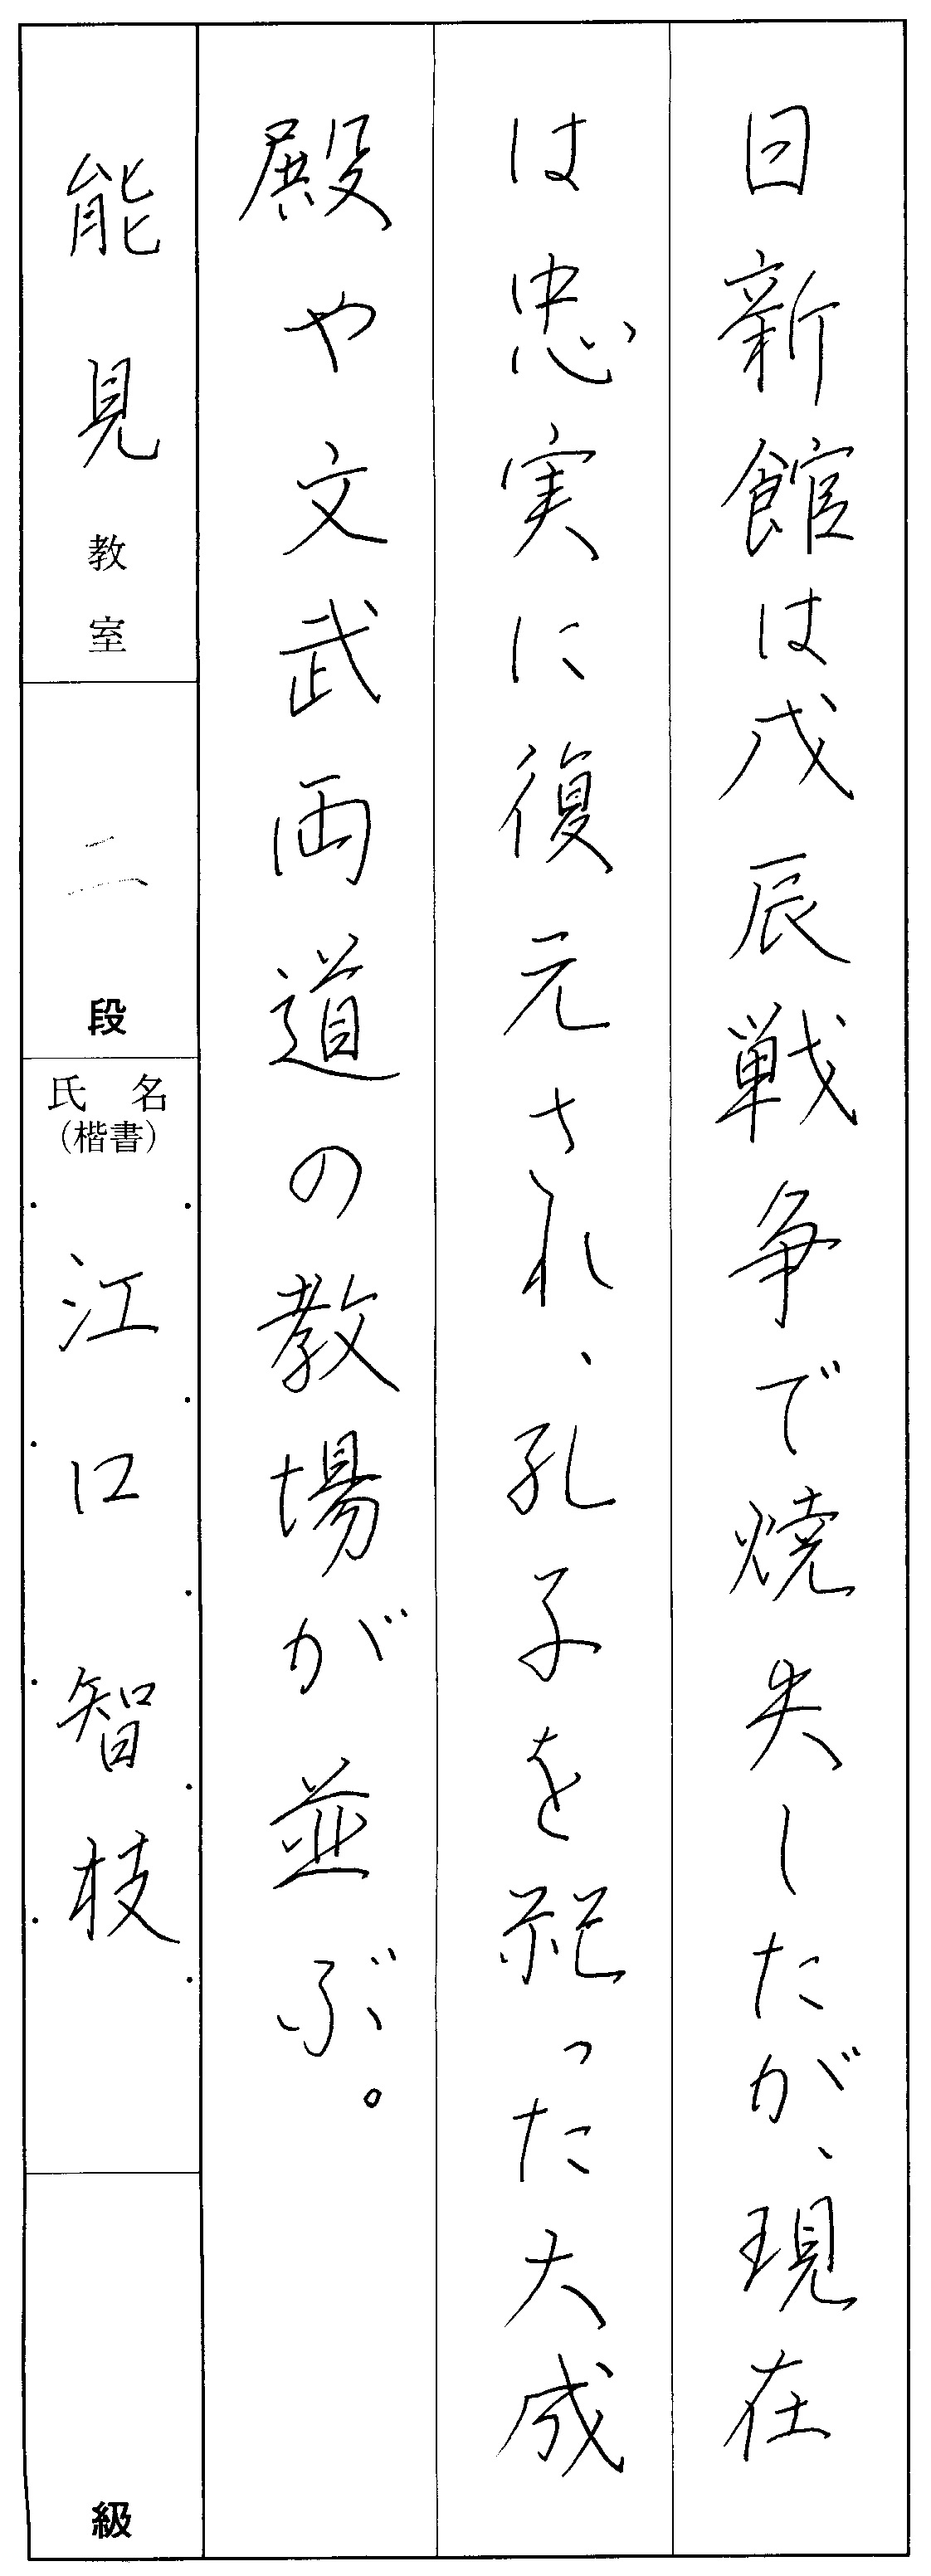 日新館は戊辰戦争で焼失したが、現在
は忠実に復元され、孔子を祀った大成
殿や文武両道の教場が並ぶ。
能見教室
二段
氏名
(楷書)
江口智枝
級